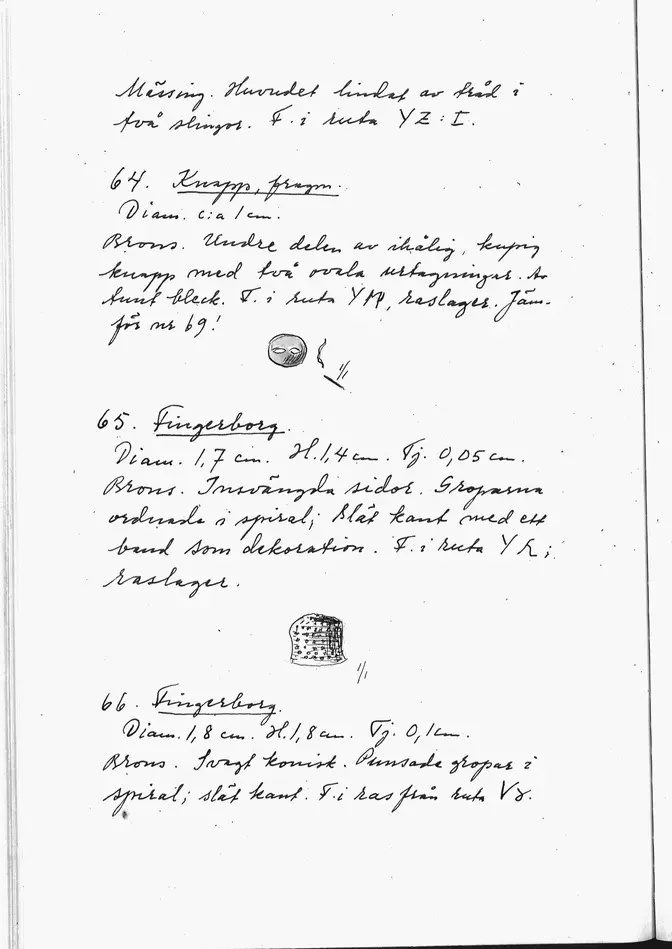 Mässing. Huvudet lindat av tråd i
två slingor. F. i ruta YZ: I.
64. Knapp, fragm.
Diam. c:a 1 cm.
Brons. Undre delen av ihålig, kupig
knapp med två ovala urtagningar. Av
tunt bleck. F. i ruta Y raslager. Jäm-
för nr 69!
1/1
65. Fingerborg.
Diam. 1,7 cm. H. 1,4 cm. Tj. 0,05 cm.
Brons. Insvängda sidor. Groparna
ordnade i spiral; slät kant med ett
band som dekoration. F. i ruta Y
raslager.
1/1
66. Fingerborg.
Diam. 1,8 cm. H. 1,8 cm. Tj. 0,1 cm.
Brons. Svagt konisk. Punsade gropar i
spiral; slät kant. F. i ras från ruta V